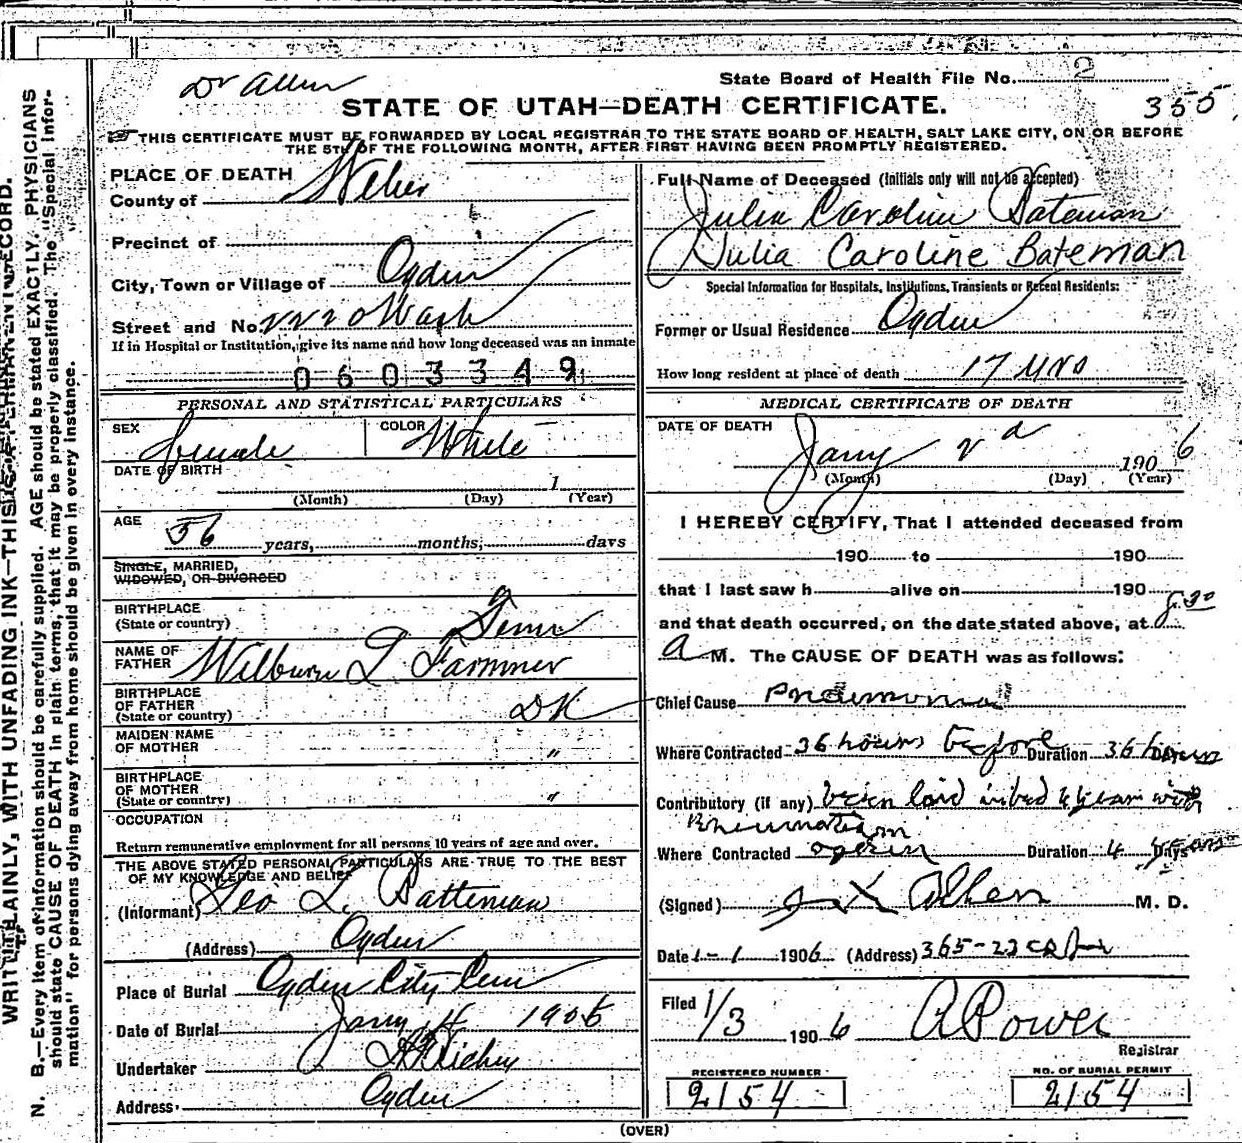 Dr Allen
State Board of Health File No. 2
355
STATE OF UTAH—DEATH CERTIFICATE.
THIS CERTIFICATE MUST BE FORWARDED BY LOCAL REGISTRAR TO THE STATE BOARD OF HEALTH, SALT LAKE CITY, ON OR BEFORE
THE 5TH OF THE FOLLOWING MONTH, AFTER FIRST HAVING BEEN PROMPTLY REGISTERED.
PLACE OF DEATH
County of Weber
Precinct of
City, Town or Village of Ogden
Street and No. 2220 Wash
If in Hospital or Institution, give its name and how long deceased was an inmate
0603349
PERSONAL AND STATISTICAL PARTICULARS
SEX female COLOR White
DATE OF BIRTH
1
(Month) (Day) (Year)
AGE
56 years, months, days
SINGLE, MARRIED,
WIDOWED, OR DIVORCED
BIRTHPLACE
(State or country) Tenn
NAME OF
FATHER Wilburn L Farmner
BIRTHPLACE
OF FATHER
(State or country) DK
MAIDEN NAME
OF MOTHER "
BIRTHPLACE
OF MOTHER
(State or country) "
OCCUPATION
Return remunerative employment for all persons 10 years of age and over.
THE ABOVE STATED PERSONAL PARTICULARS ARE TRUE TO THE BEST
OF MY KNOWLEDGE AND BELIEF
(Informant) Geo L. Batteman
(Address) Ogden
Place of Burial Ogden City Cem
Date of Burial Jany 4 1906
Undertaker Richey
Address Ogden
Full Name of Deceased (Initials only will not be accepted)
Julia Caroline Bateman
Julia Caroline Bateman
Special Information for Hospitals, Institutions, Transients or Recent Residents:
Former or Usual Residence Ogden
How long resident at place of death 17 yrs
MEDICAL CERTIFICATE OF DEATH
DATE OF DEATH
Jany 2d 1906
(Month) (Day) (Year)
I HEREBY CERTIFY, That I attended deceased from
190 to 190
that I last saw h alive on 190
and that death occurred, on the date stated above, at 8.30
a M. The CAUSE OF DEATH was as follows:
Chief Cause Pneumonia
Where Contracted 36 hours before Duration 36 hours
Contributory (if any) been laid in bed 4 years with
Rheumatism
Where Contracted Duration 4 years
(Signed) Allen M. D.
Date 1-1 1906 (Address) 365-23
Filed 1/3 1906 A Power
Registrar
REGISTERED NUMBER
2154
NO. OF BURIAL PERMIT
2154
(OVER)
WRITE PLAINLY, WITH UNFADING INK—THIS IS A PERMANENT RECORD.
N. B.—Every item of information should be carefully supplied. AGE should be stated EXACTLY. PHYSICIANS
should state CAUSE OF DEATH in plain terms, that it may be properly classified. The "Special Infor-
mation" for persons dying away from home should be given in every instance.